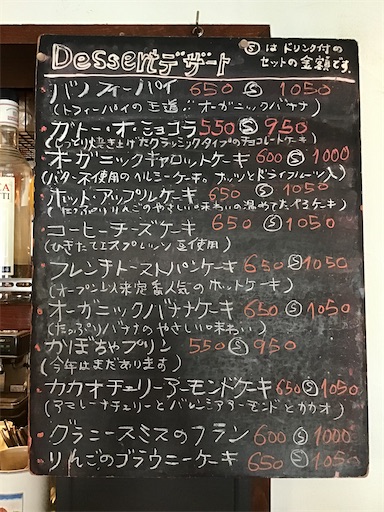 Dessertデザート
Ⓢはドリンク付の
セットの金額です.
バノフィーパイ 650 Ⓢ 1050
(トフィーパイの王道∴オーガニックバナナ)
ガトー・オ・ショコラ 550 Ⓢ 950
(しっとり焼き上げたクラシックタイプのチョコレートケーキ)
オーガニックキャロットケーキ 600 Ⓢ 1000
(バター不使用のヘルシーケーキ。ナッツとドライフルーツ入)
ホット・アップルケーキ 650 Ⓢ 1050
(たっぷりりんごのやさしい味わい温めてたべるケーキ)
コーヒーチーズケーキ 650 Ⓢ 1050
(ひきたてエスプレッソ豆使用)
フレンチトーストパンケーキ 650 Ⓢ 1050
(オープン以来定番人気のホットケーキ)
オーガニックバナナケーキ 650 Ⓢ 1050
(たっぷりバナナのやさしい味わい)
かぼちゃプリン 550 Ⓢ 950
(今年はまだあります)
カカオチェリーアーモンドケーキ 650 Ⓢ 1050
(アマレーナチェリーとバレンシアアーモンドとカカオ)
グラニースミスのフラン 600 Ⓢ 1000
りんごのブラウニーケーキ 650 Ⓢ 1050